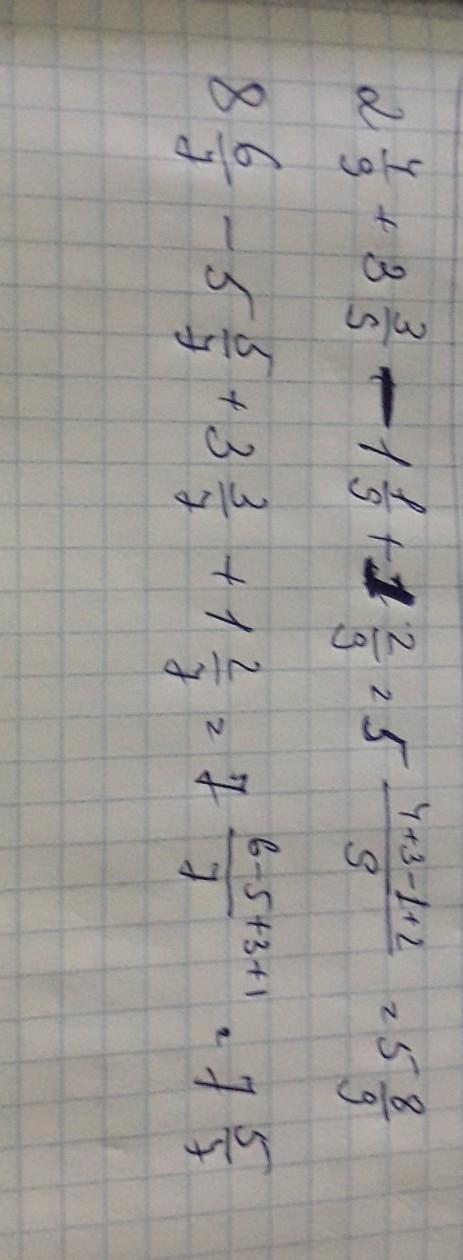 2 4/9 + 3 3/9 - 1 1/9 + 1 2/9 = 5 4+3-1+2/9 = 5 8/9
8 6/7 - 5 5/7 + 3 3/7 + 1 2/7 = 7 6-5+3+1/7 = 7 5/7